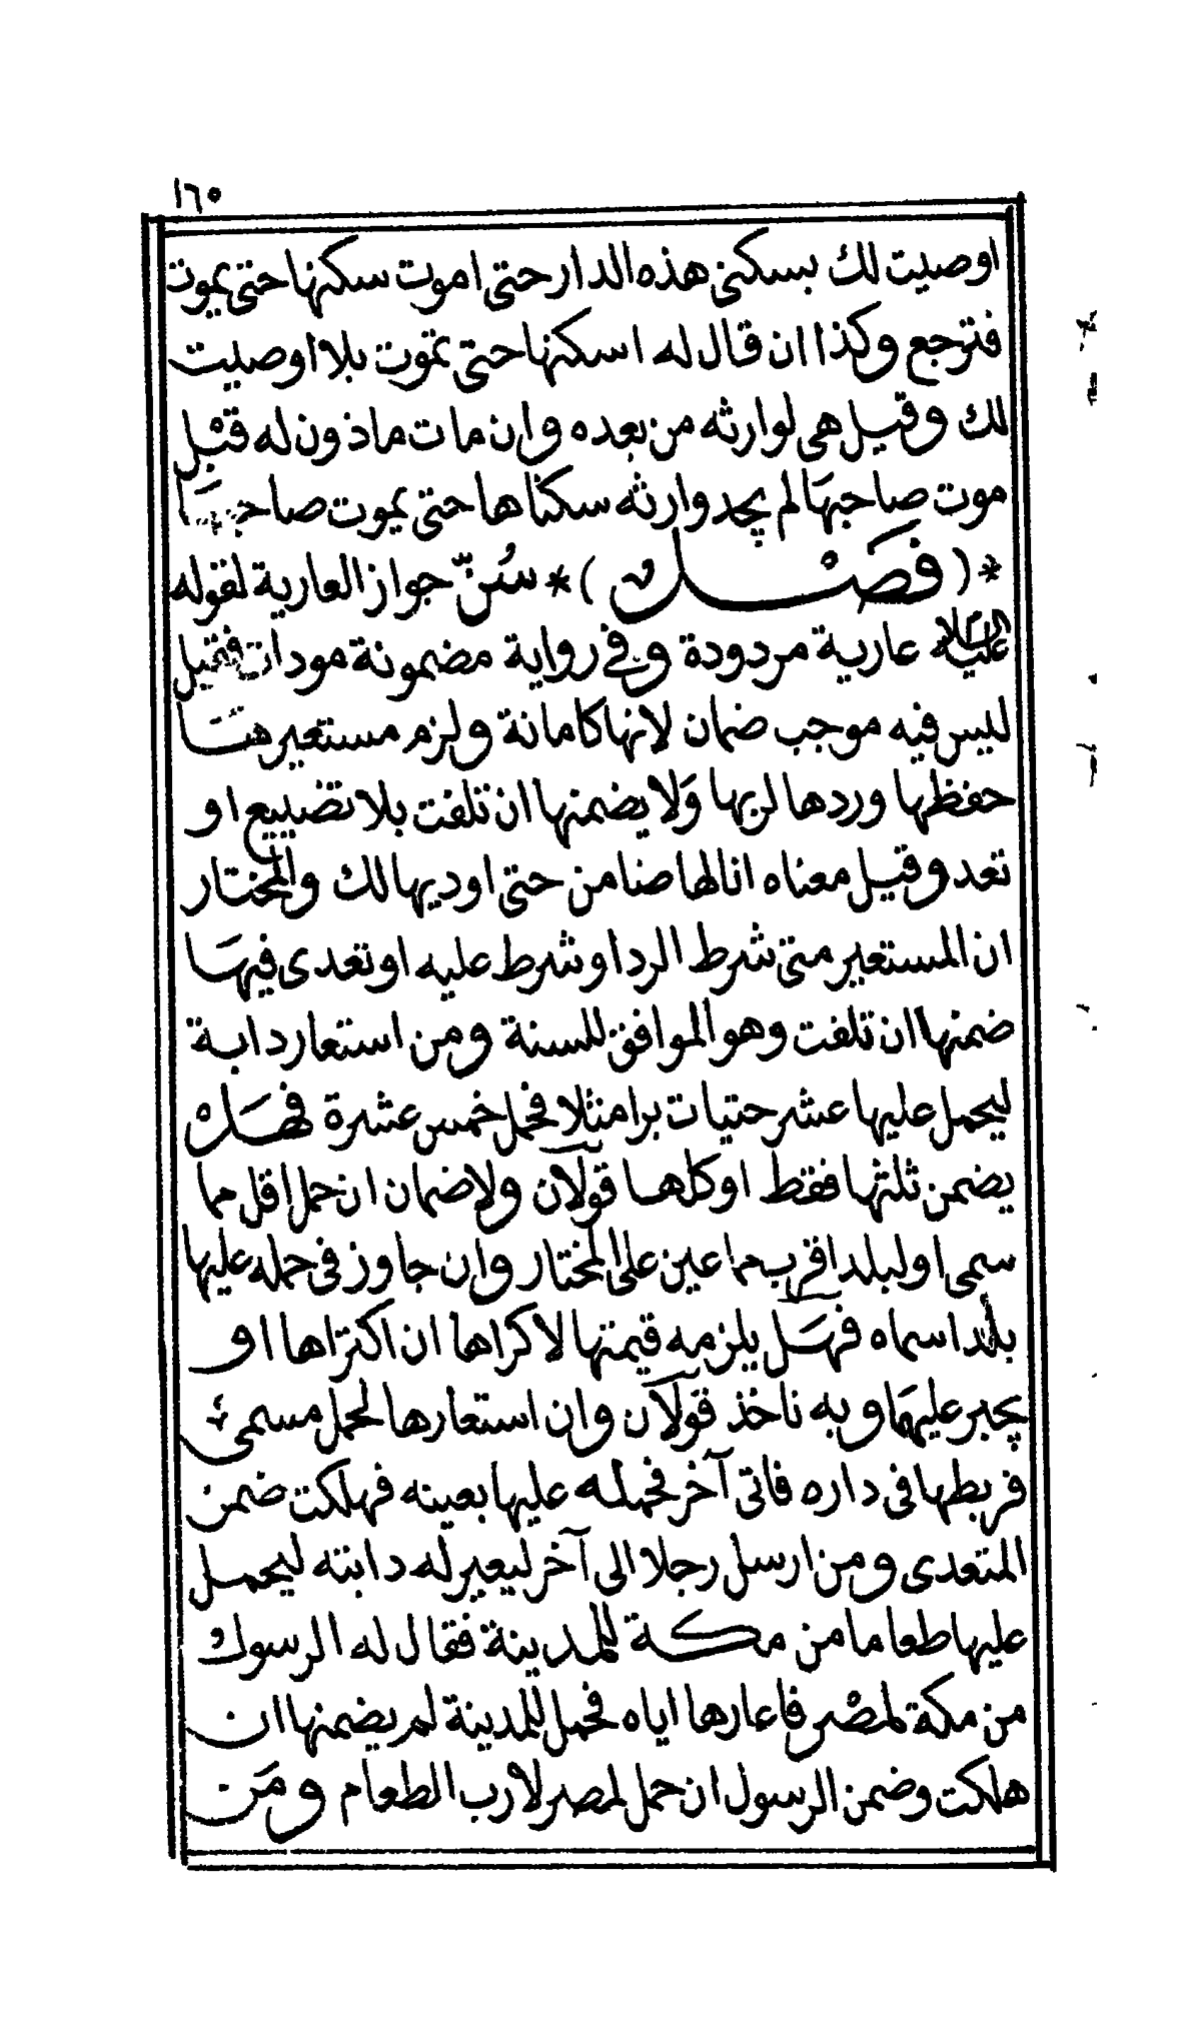 ١٦٥
اوصيت لك بسكنى هذه الدار حتى اموت سكنها حتى يموت
فترجع وكذا ان قال له اسكنها حتى تموت بلا اوصيت
لك وقيل هى لوارثه من بعده وان مات ماذون له قبْل
موت صاحبهَا لم يجد وارثه سكناها حتى يموت صاحبهَا
*( فصَْل )* سُنّ جواز العارية لقوله
عليه السلام عارية مردودة وفي رواية مضمونة مودات فقيل
ليس فيه موجب ضمان لانها كامانة ولزم مستعيرهَا
حفظها وردها لربها وَلا يضمنها ان تلفت بلا تضييع او
تعد وقيل معناه انا لها ضامن حتى اوديها لك والمختار
ان المستعير متى شرط الرد او شرط عليه او تعدى فيهَا
ضمنها ان تلفت وهو الموافق للسنة ومن استعار دابة
ليحمل عليها عشر حتيات برا مثلا فحمل خمس عشرة فهَلْ
يضمن ثلثها فقط او كلها قولآن ولا ضمان ان حمل اقل مما
سمى او لبلد اقرب مما عين على المختار وان جاوز فى حمله عليها
بلدا سماه فهَل يلزمه قيمتها لا كراها ان اكتراها او
يجبر عليهمَا وبه ناخذ قولآن وان استعارها لحمل مسمى
فربطها فى داره فاتى آخر فحمله عليها بعينه فهلكت ضمن
المتعدى ومن ارسل رجلا الى آخر ليعير له دابته ليحمل
عليها طعاما من مكة للمدينة فقال له الرسول
من مكة لمصْر فاعارها اياه فحمل للمدينة لم يضمنها ان
هلكت وضمن الرسول ان حمل لمصر لا رب الطعام ومَن